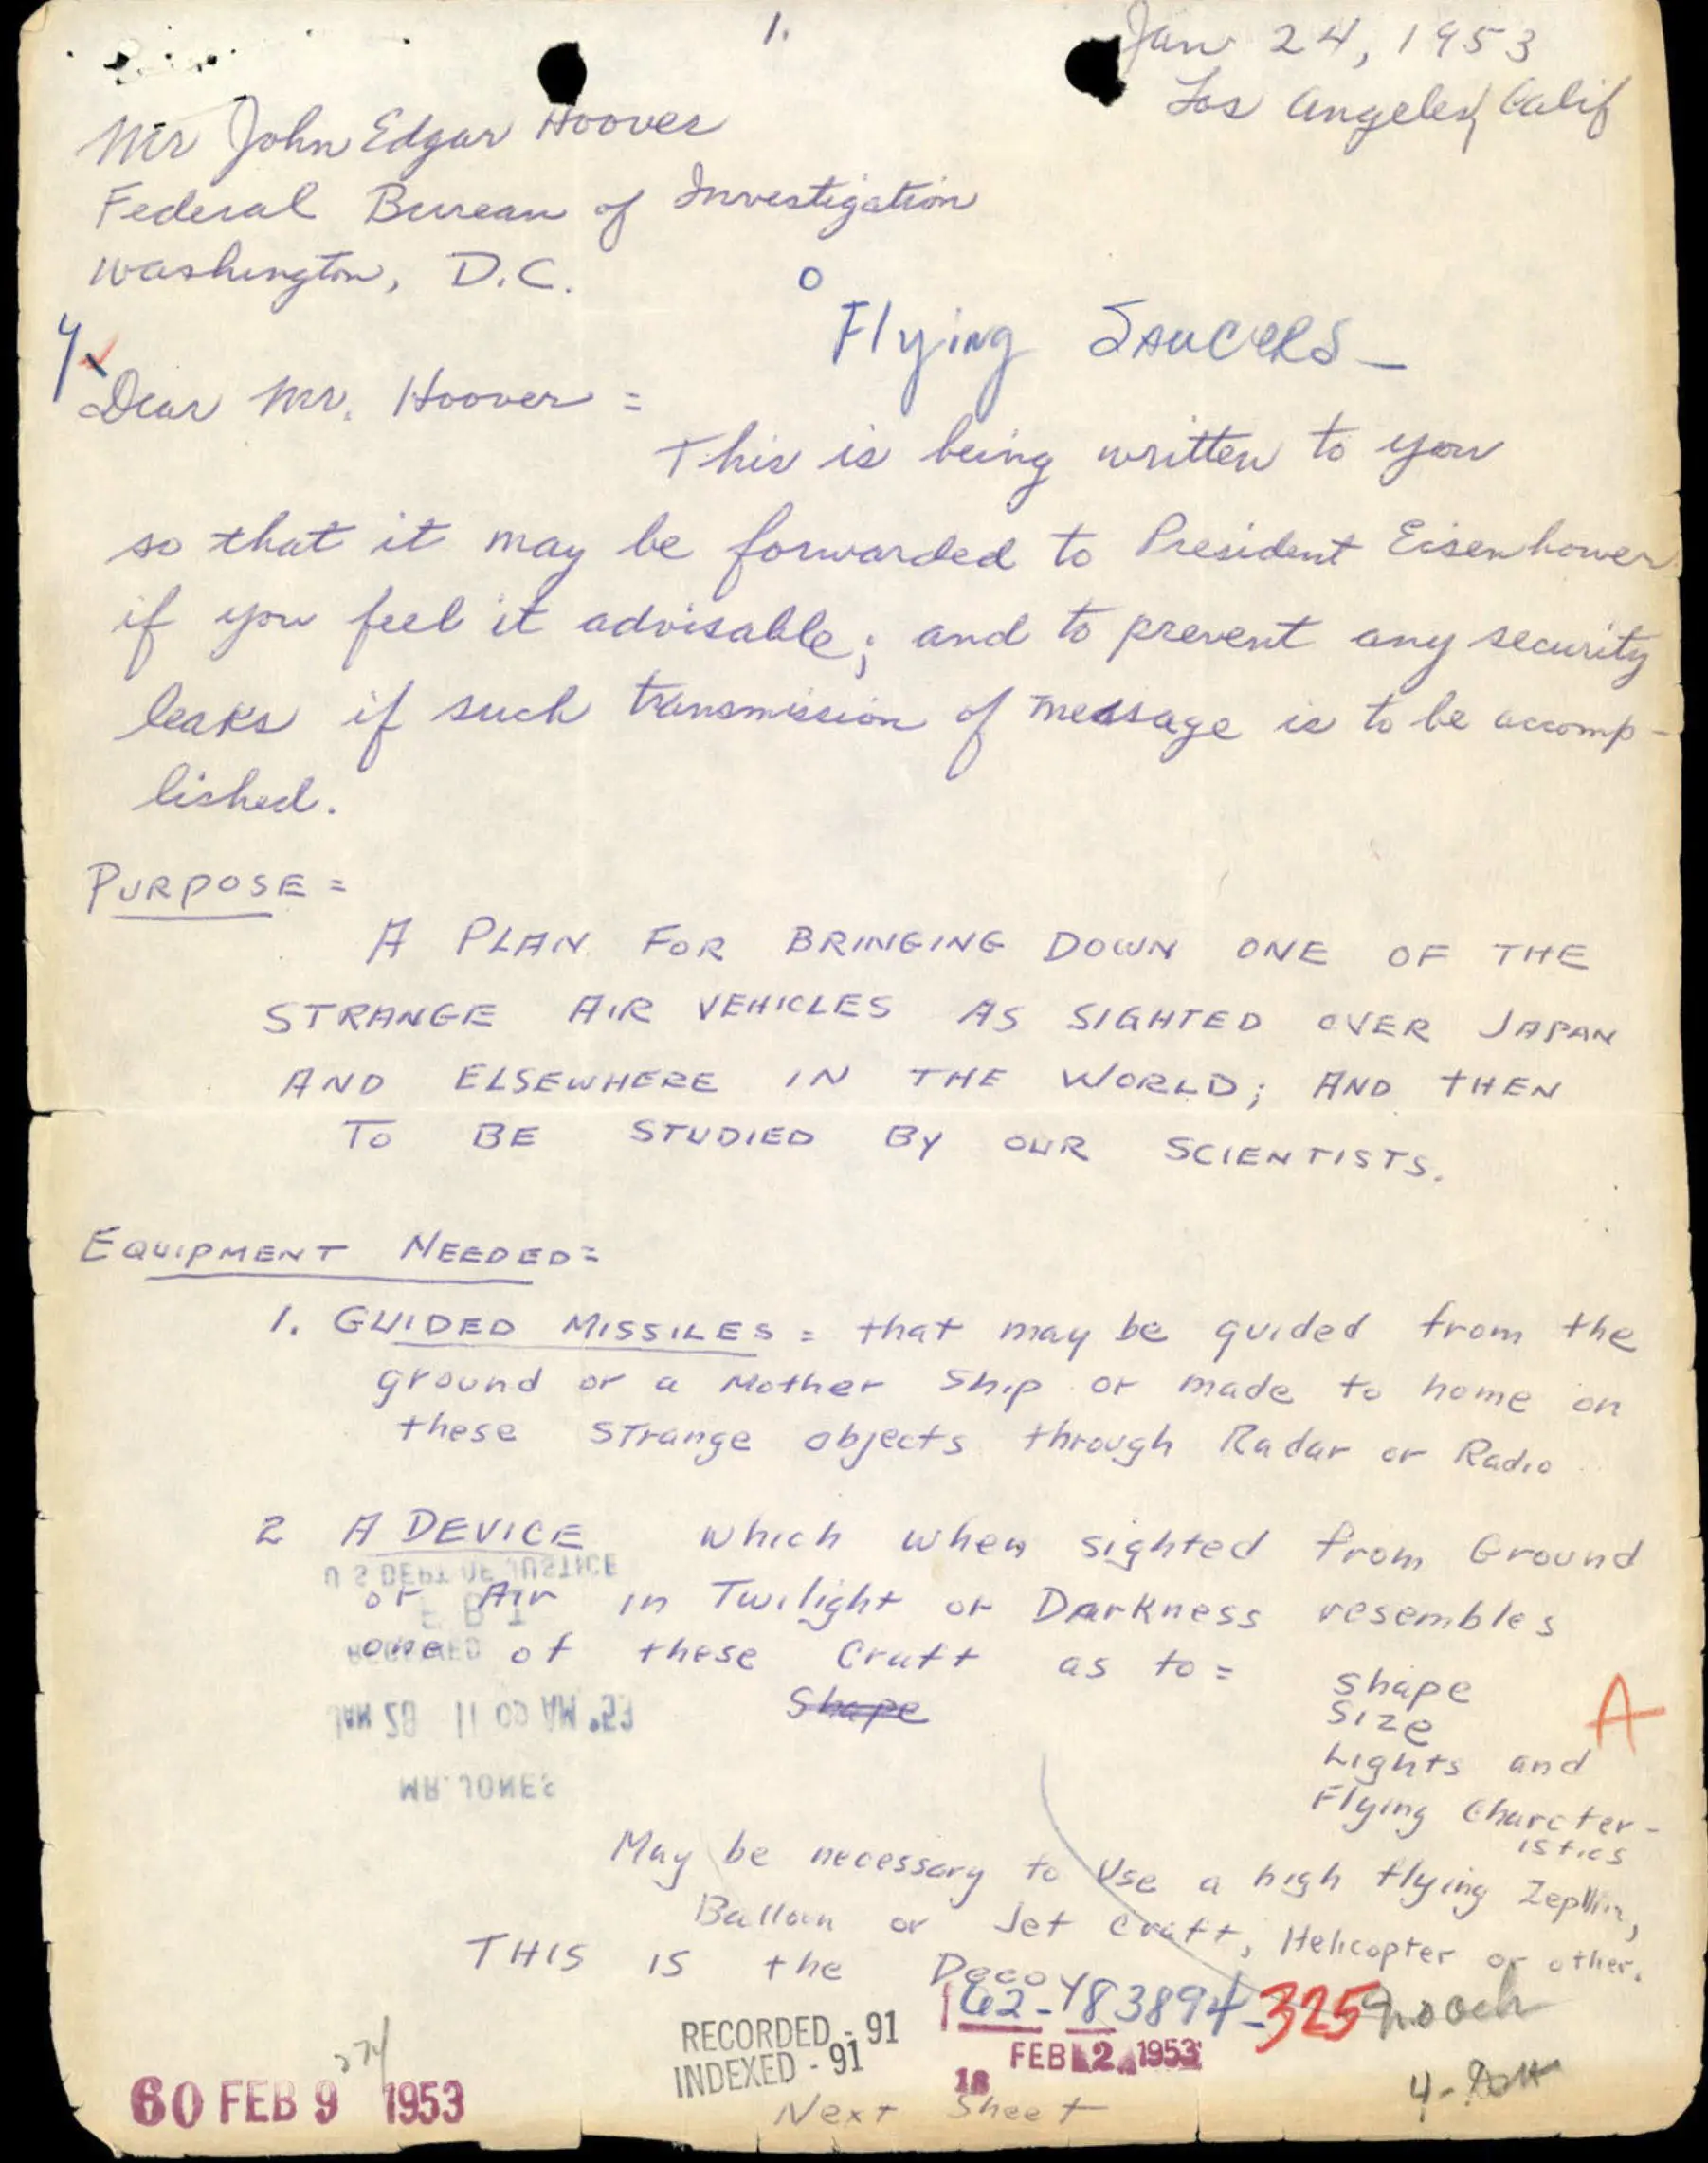 1.
Jan 24, 1953
Los Angeles, Calif
Mr John Edgar Hoover
Federal Bureau of Investigation
Washington, D.C.
Flying SAUCERS -
Dear Mr. Hoover =
This is being written to you
so that it may be forwarded to President Eisenhower
if you feel it advisable; and to prevent any security
leaks if such transmission of message is to be accomp-
lished.
PURPOSE =
A PLAN FOR BRINGING DOWN ONE OF THE
STRANGE AIR VEHICLES AS SIGHTED OVER JAPAN
AND ELSEWHERE IN THE WORLD; AND THEN
TO BE STUDIED BY OUR SCIENTISTS.
EQUIPMENT NEEDED =
1. GUIDED MISSILES = that may be guided from the
ground or a Mother Ship or made to home on
these strange objects through Radar or Radio
2 A DEVICE which when sighted from Ground
U S DEPT OF JUSTICE
or Air in Twilight or Darkness resembles
F B I
one of these Craft as to = Shape
RECEIVED
Shape
Size
A
JAN 28 11 00 AM '53
Lights and
MR. JONES
Flying Charcter-
istics
May be necessary to Use a high flying Zepllin,
Balloon or Jet Craft, Helicopter or other.
THIS IS the Decoy
62-83894-325
RECORDED - 91
INDEXED - 91
FEB 2 1953
18
60 FEB 9 1953
274
Next Sheet